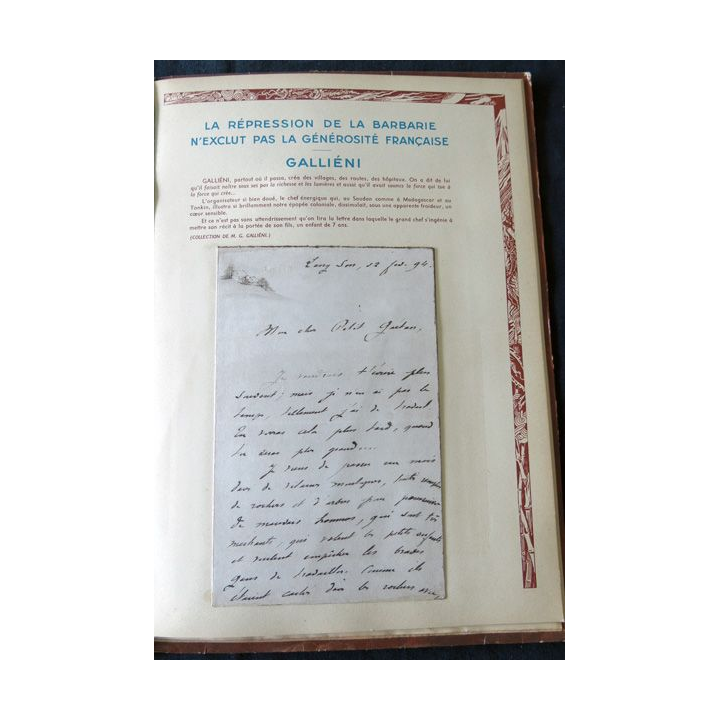 LA RÉPRESSION DE LA BARBARIE
N'EXCLUT PAS LA GÉNÉROSITÉ FRANÇAISE
GALLIÉNI
GALLIÉNI, partout où il passa, créa des villages, des routes, des hôpitaux. On a dit de lui
qu'il faisait naître sous ses pas la richesse et les lumières et aussi qu'il avait soumis la force qui tue à
la force qui crée...
L'organisateur si bien doué, le chef énergique qui, au Soudan comme à Madagascar et au
Tonkin, illustra si brillamment notre épopée coloniale, dissimulait, sous une apparente froideur, un
cœur sensible.
Et ce n'est pas sans attendrissement qu'on lira la lettre dans laquelle le grand chef s'ingénie à
mettre son récit à la portée de son fils, un enfant de 7 ans.
(COLLECTION DE M. G. GALLIÉNI.)
Lang Son, 12 94.
Mon cher Petit Gaëtan,
Je t'écrire plus
souvent; mais je n'en ai pas le
temps, tellement j'ai de travail
Tu verras cela plus tard, quand
tu seras plus grand....
Je viens de passer un mois
dans de vilaines montagnes, toutes
de rochers et d'arbres pour
de mauvais hommes, qui sont très
méchants, qui volent les petits enfants
et veulent empêcher les braves
gens de travailler. Comme ils
étaient cachés dans les rochers